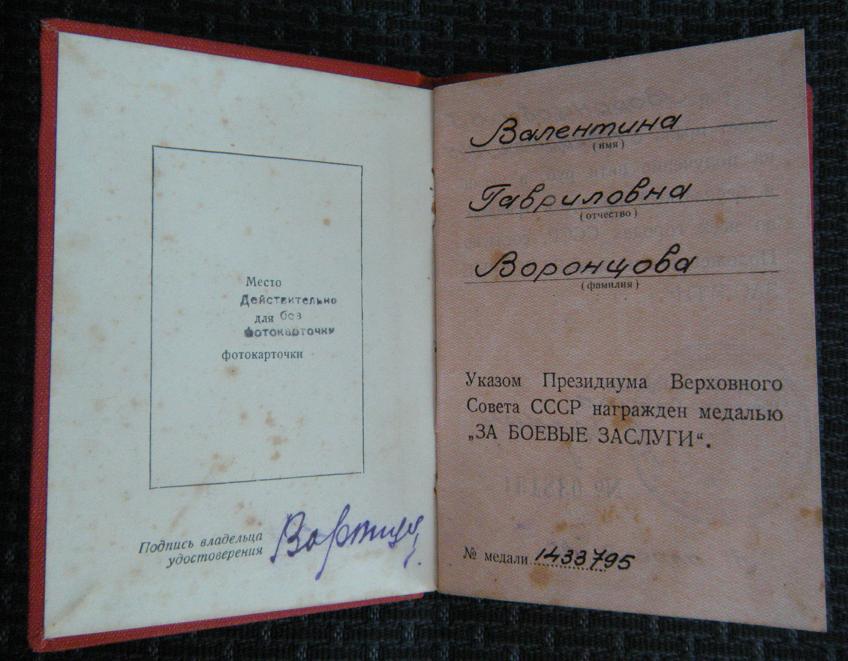 Место
Действительно
для без
фотокарточки
фотокарточки
Подпись владельца
удостоверения
Валентина
(имя)
Гавриловна
(отчество)
Воронцова
(фамилия)
Указом Президиума Верховного
Совета СССР награжден медалью
„ЗА БОЕВЫЕ ЗАСЛУГИ“.
№ медали 1433795